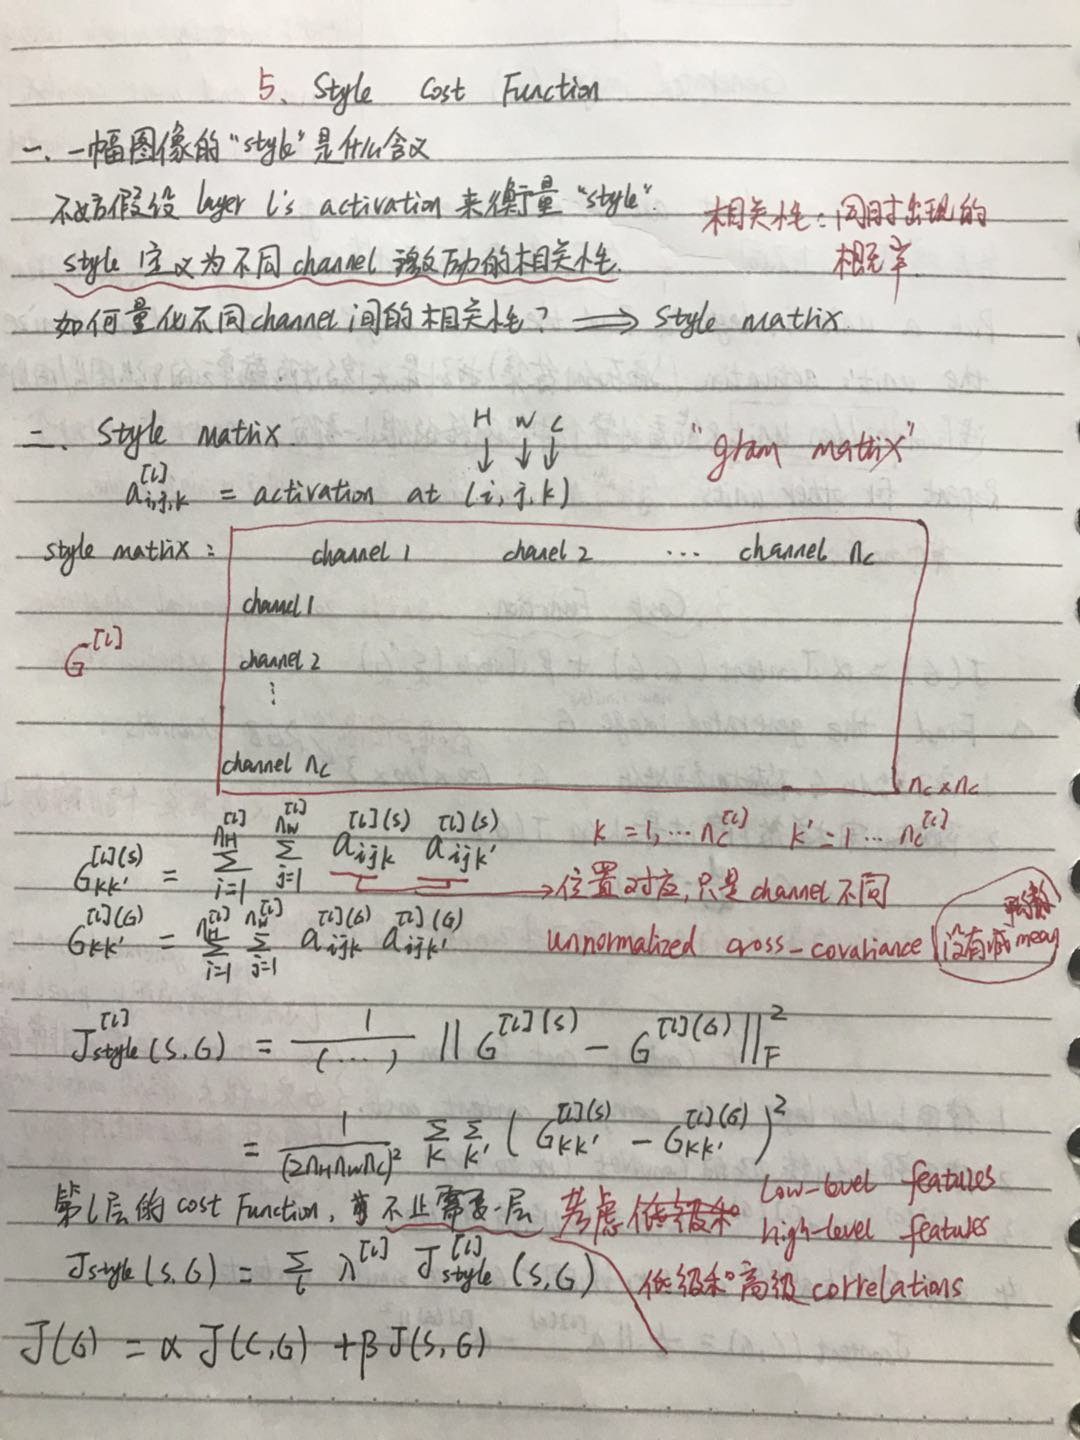 5、Style Cost Function
一、一幅图像的"style"是什么含义
不妨假设 layer l's activation 来衡量"style".
相关性：同时出现的
概率.
style 定义为不同channel 激励的相关性.
如何量化不同channel间的相关性？ ⟹ style matrix
二、Style matrix
H W C
↓ ↓ ↓
"gram matrix"
a_{i,j,k}^{[l]} = activation at (i, j, k)
style matrix :
channel 1 chanel 2 ... channel n_c
channel 1
G^{[l]}
channel 2
⋮
channel n_c
n_c × n_c
G_{kk'}^{[l](S)} = \sum_{i=1}^{n_H^{[l]}} \sum_{j=1}^{n_W^{[l]}} a_{ijk}^{[l](S)} a_{ijk'}^{[l](S)} k = 1, ... n_c^{[l]} k' = 1 ... n_c^{[l]}
→位置对应，只是channel不同
G_{kk'}^{[l](G)} = \sum_{i=1}^{n_H^{[l]}} \sum_{j=1}^{n_W^{[l]}} a_{ijk}^{[l](G)} a_{ijk'}^{[l](G)} unnormalized cross-covariance
没有减mean
J_{style}^{[l]}(S,G) = \frac{1}{(...)} || G^{[l](S)} - G^{[l](G)} ||_F^2
= \frac{1}{(2n_H n_W n_c)^2} \sum_k \sum_{k'} ( G_{kk'}^{[l](S)} - G_{kk'}^{[l](G)} )^2
第l层的 cost Function, 不止需要一层 考虑 low-level features
high-level features
J_{style}(S,G) = \sum_l λ^{[l]} J_{style}^{[l]}(S,G) 低级和高级correlations
J(G) = α J(C,G) + β J(S,G)